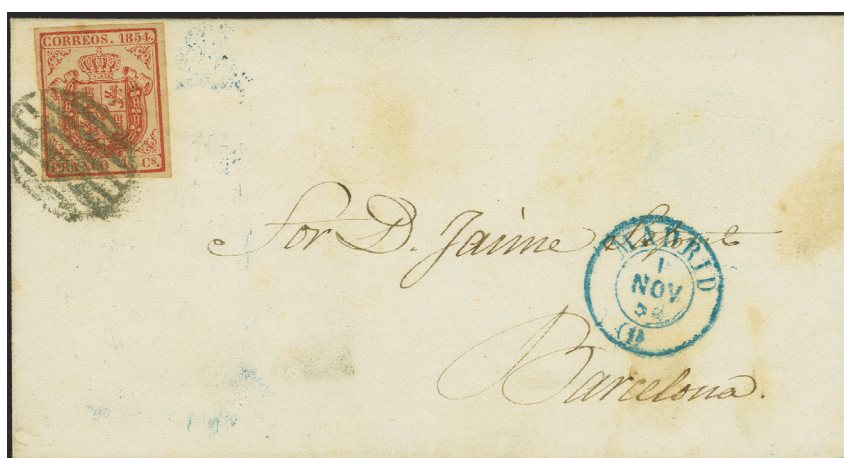 CORREOS. 1854.
Cs.
Sor D. Jaime
MADRID
1
NOV
(1)
Barcelona.